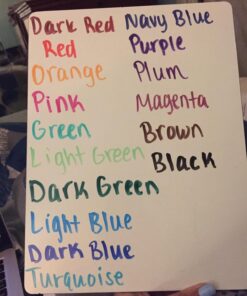 Dark Red
Red
Orange
Pink
Green
Light Green
Dark Green
Light Blue
Dark Blue
Turquoise
Navy Blue
Purple
Plum
Magenta
Brown
Black